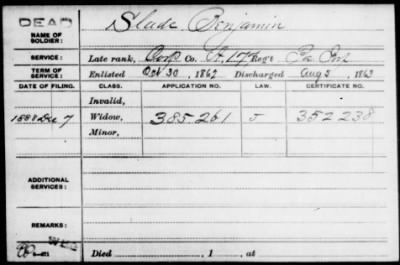 DEAD
NAME OF SOLDIER: Slade, Benjamin
SERVICE: Late rank, Corp Co. A, 174 Reg't Pa Inf
TERM OF SERVICE: Enlisted Oct 30, 1862 Discharged Aug 5, 1863
DATE OF FILING. CLASS. APPLICATION NO. LAW. CERTIFICATE NO.
Invalid,
1888 Dec 7 Widow, 385.261 J 352 238
Minor,
ADDITIONAL SERVICES:
REMARKS:
Died , 1 , at